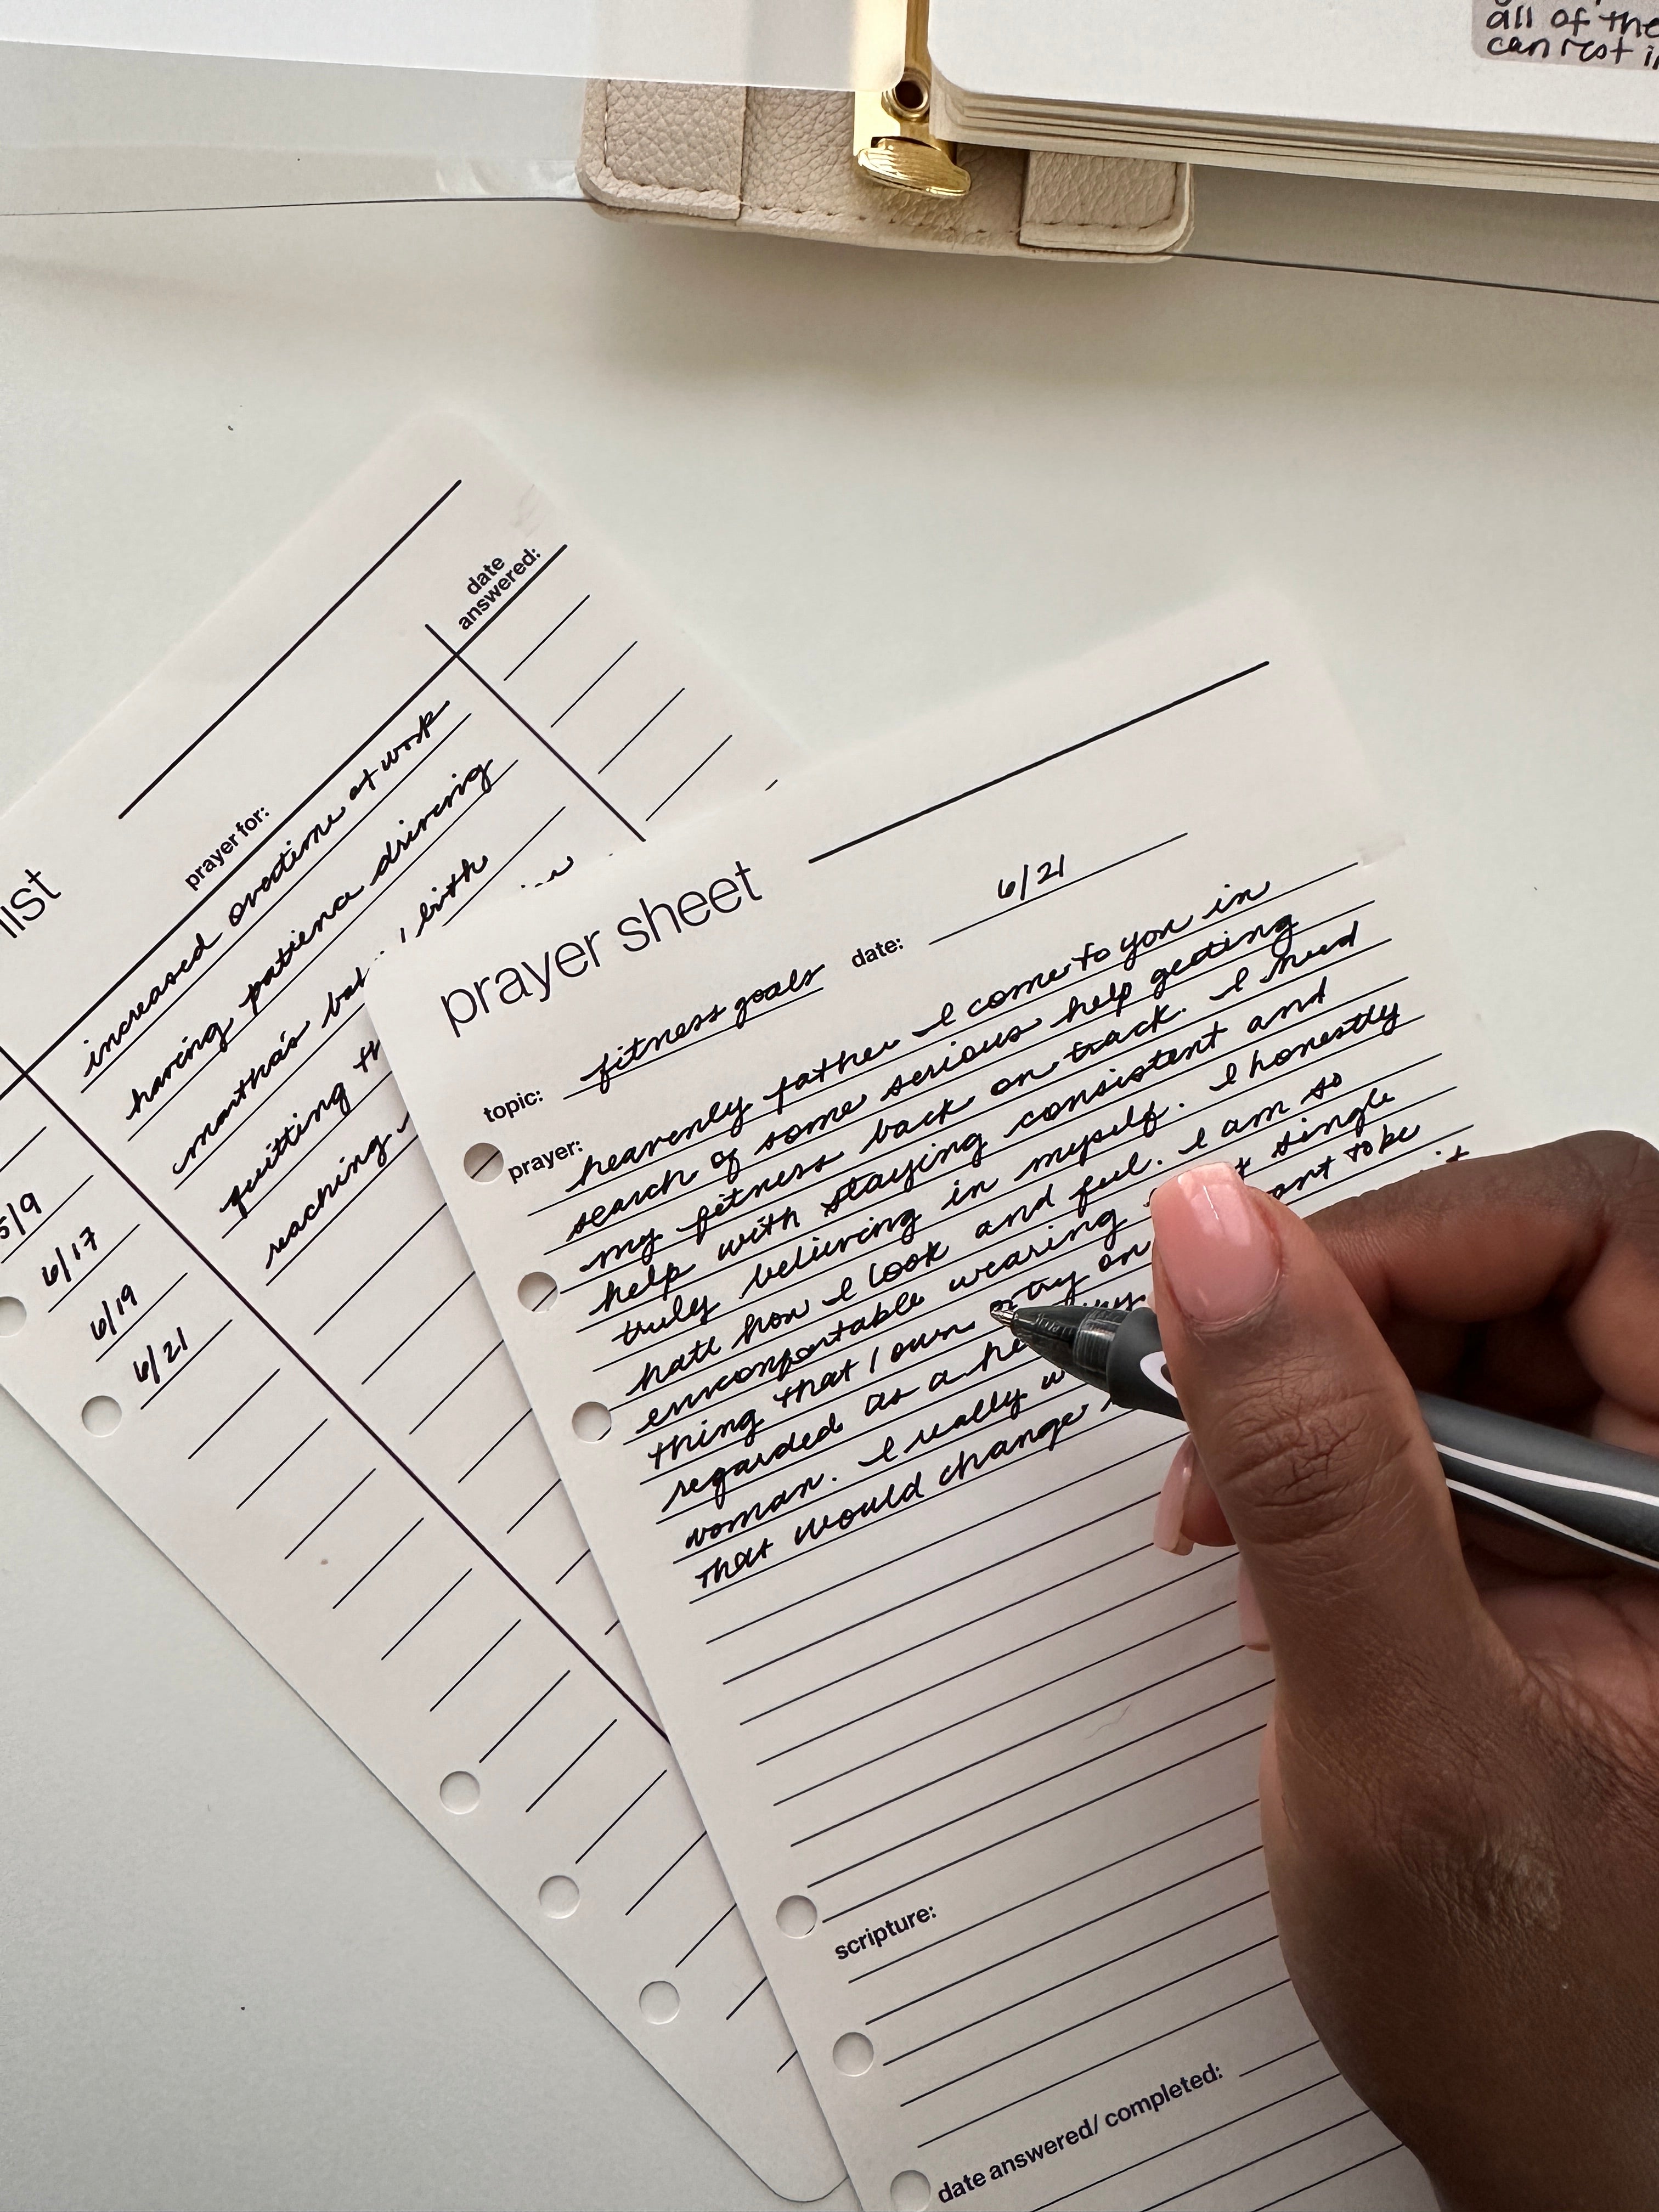 all of the
can rest i
list
prayer for:
date
answered:
increased overtime at work
having patience driving
martha's birth
quitting
reaching
5/9
6/17
6/19
6/21
prayer sheet
topic: fitness goals date: 6/21
prayer:
heavenly father I come to you in
search of some serious help getting
my fitness back on track. I need
help with staying consistent and
truly believing in myself. I honestly
hate how I look and feel. I am so
uncomfortable wearing single
thing that I own or try on want to be
regarded as a
woman. I really
that would change
scripture:
date answered/ completed: